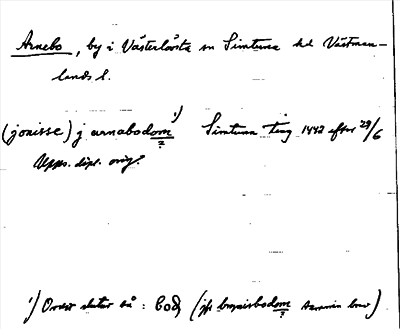 Arnebo, by i Västerlövsta sn Simtuna hd Västman-
lands l.
(jonisse) j arnabodom 1) Simtuna ting 1442 efter 29/6
?
Upps. dipl. orig.
1) Ordet slutar så: bod (jfr bropisbodom samma brev)
?